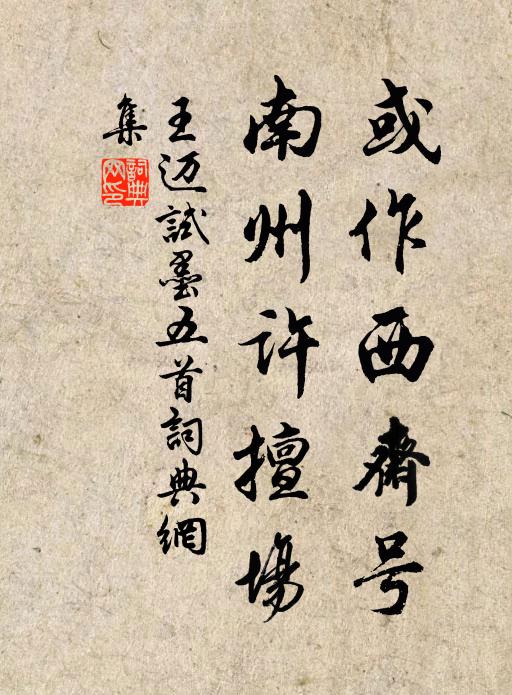 或作西齋号
南州許擅場
王迈試墨五首詞典網
集
詞典
网印